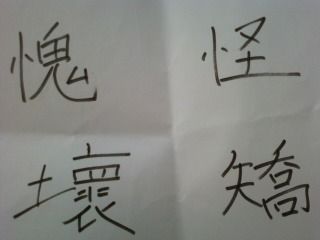 愧 怪
壞 矯